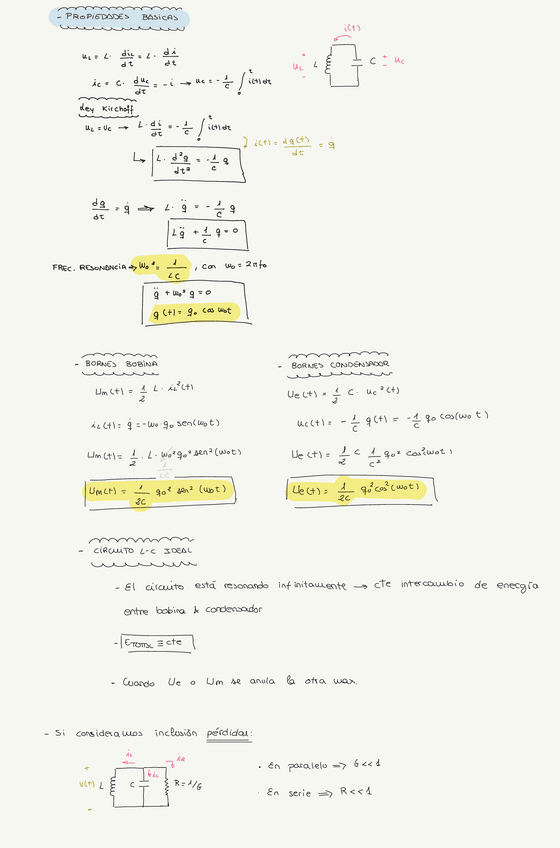 - PROPIEDADES BÁSICAS
i(t)
u_L = L · di_L/dt = L · di/dt
u_L L C u_C
+ -
+ -
i_C = C · du_C/dt = -i → u_C = - 1/C ∫₀ᵗ i(t)dt
Ley Kirchoff
u_L = u_C → L · di/dt = - 1/C ∫₀ᵗ i(t)dt
i(t) = dq(t)/dt = q̇
↳ L · d²q/dt² = - 1/C q
dq/dt = q̇ ⇒ L · q̈ = - 1/C q
Lq̈ + 1/C q = 0
FREC. RESONANCIA → ω₀² = 1/LC , con ω₀ = 2πf₀
q̈ + ω₀² q = 0
q(t) = q₀ cos ω₀t
- BORNES BOBINA
Um(t) = 1/2 L · i_L²(t)
i_L(t) = q̇ = -ω₀·q₀ sen(ω₀t)
Um(t) = 1/2 · L · ω₀² q₀² sen²(ω₀t)
1/LC
Um(t) = 1/2C q₀² sen²(ω₀t)
- BORNES CONDENSADOR
Ue(t) = 1/2 C · u_C²(t)
u_C(t) = - 1/C q(t) = - 1/C q₀ cos(ω₀t)
Ue(t) = 1/2 C 1/C² q₀² cos²(ω₀t)
Ue(t) = 1/2C q₀² cos²(ω₀t)
- CIRCUITO L-C IDEAL
- El circuito está resonando infinitamente → cte intercambio de energía
entre bobina & condensador
- E_TOTAL ≡ cte
- Cuando Ue o Um se anula la otra max.
- Si consideramos inclusión pérdidas:
i_L i_R
+ i_C
v(t) L C R = 1/G
-
· En paralelo ⇒ G << 1
· En serie ⇒ R << 1